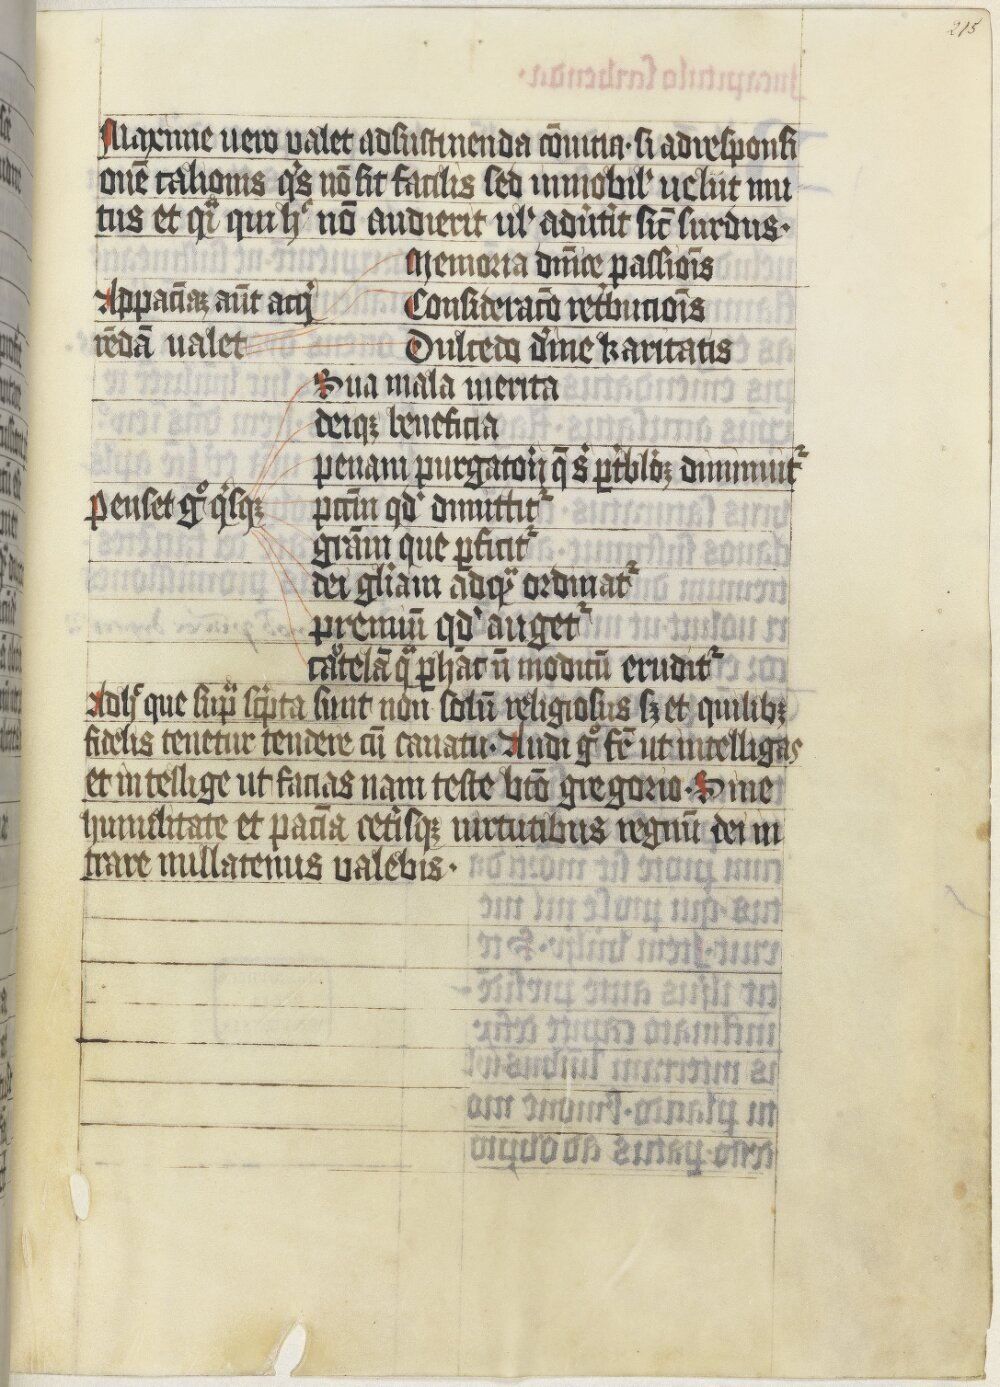 215
Maxime vero valet ad sustinenda cōvitia · si ad responsi
onē talionis q̇s nō sit facilis sed inmobil' velut mu
tus et q̈i qui h' nō audierit ul' adv̇tit sic̄ surdus ·
Memoria dn̄ice passiōis
Ap pacīaꝫ aūt acq̇
Consideracō ret'bucōis
rēdā valet
Dulcedo div̄ine karitatis
Sua mala merita
deiqꝫ beneficia
penam purgatorij q̄ s' p t'bl'oꝫ diminuit᷑
Penset gͦ q̇sqꝫ
pctm̄ qd' dimittit᷑
grām que ꝑficit᷑
dei gl'iam ad q̈ ordinat᷑
premiū qd' auget᷑
cautelā q̈ ꝑ hāc ī modicū erudit᷑
Ad h' que sup̈ sc̄pta sunt non solū religiosus sꝫ et quilibꝫ
fidelis tenetur tendere cū conatu · Audi gͦ fr̄ ut intelligas
et intellige ut facias nam teste bt̄o gregorio · Sine
humilitate et pacīa cet̄isqꝫ virtutibus regnū dei in
trare nullatenus valebis ·